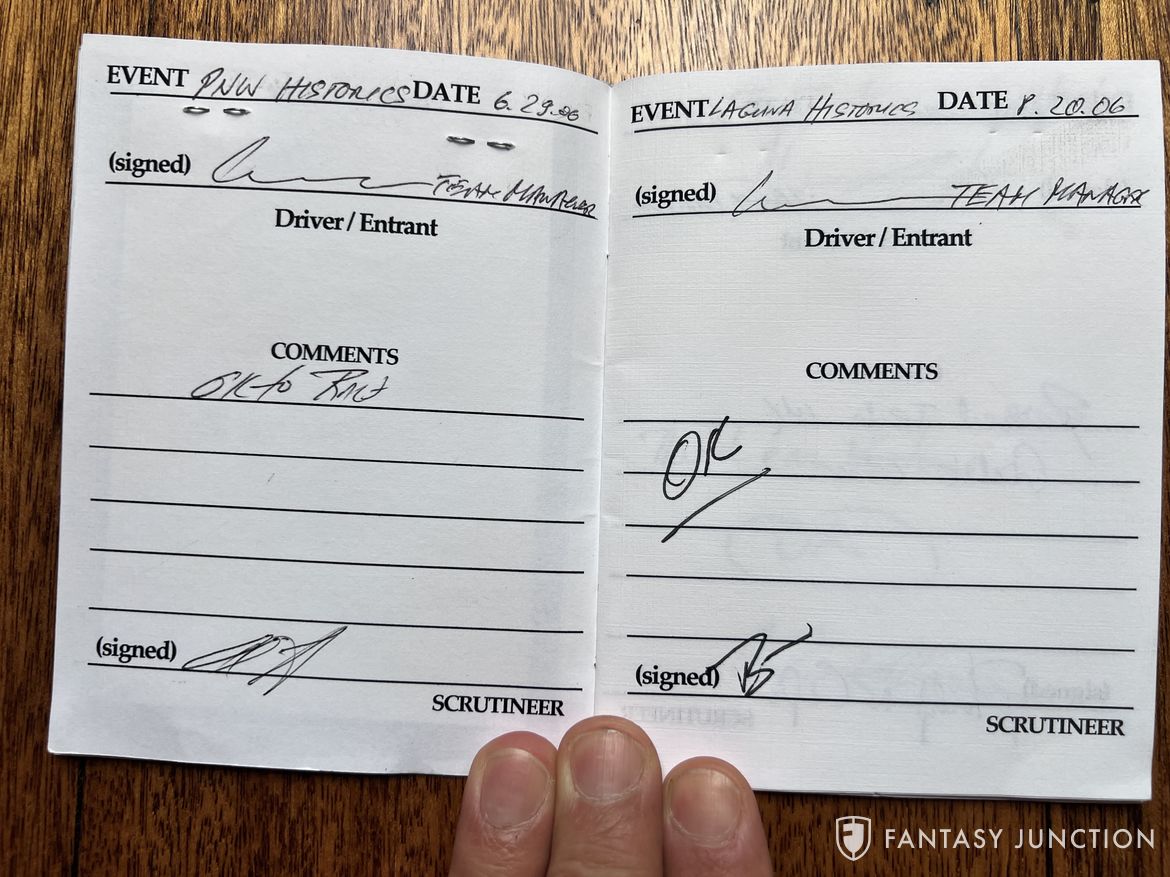 EVENT PNW HISTORICS DATE 6.29.06
(signed) TEAM MANAGER
Driver / Entrant
COMMENTS
OK to RACE
(signed)
SCRUTINEER
EVENT LAGUNA HISTORICS DATE 8.20.06
(signed) TEAM MANAGER
Driver / Entrant
COMMENTS
OK
(signed)
SCRUTINEER
FANTASY JUNCTION